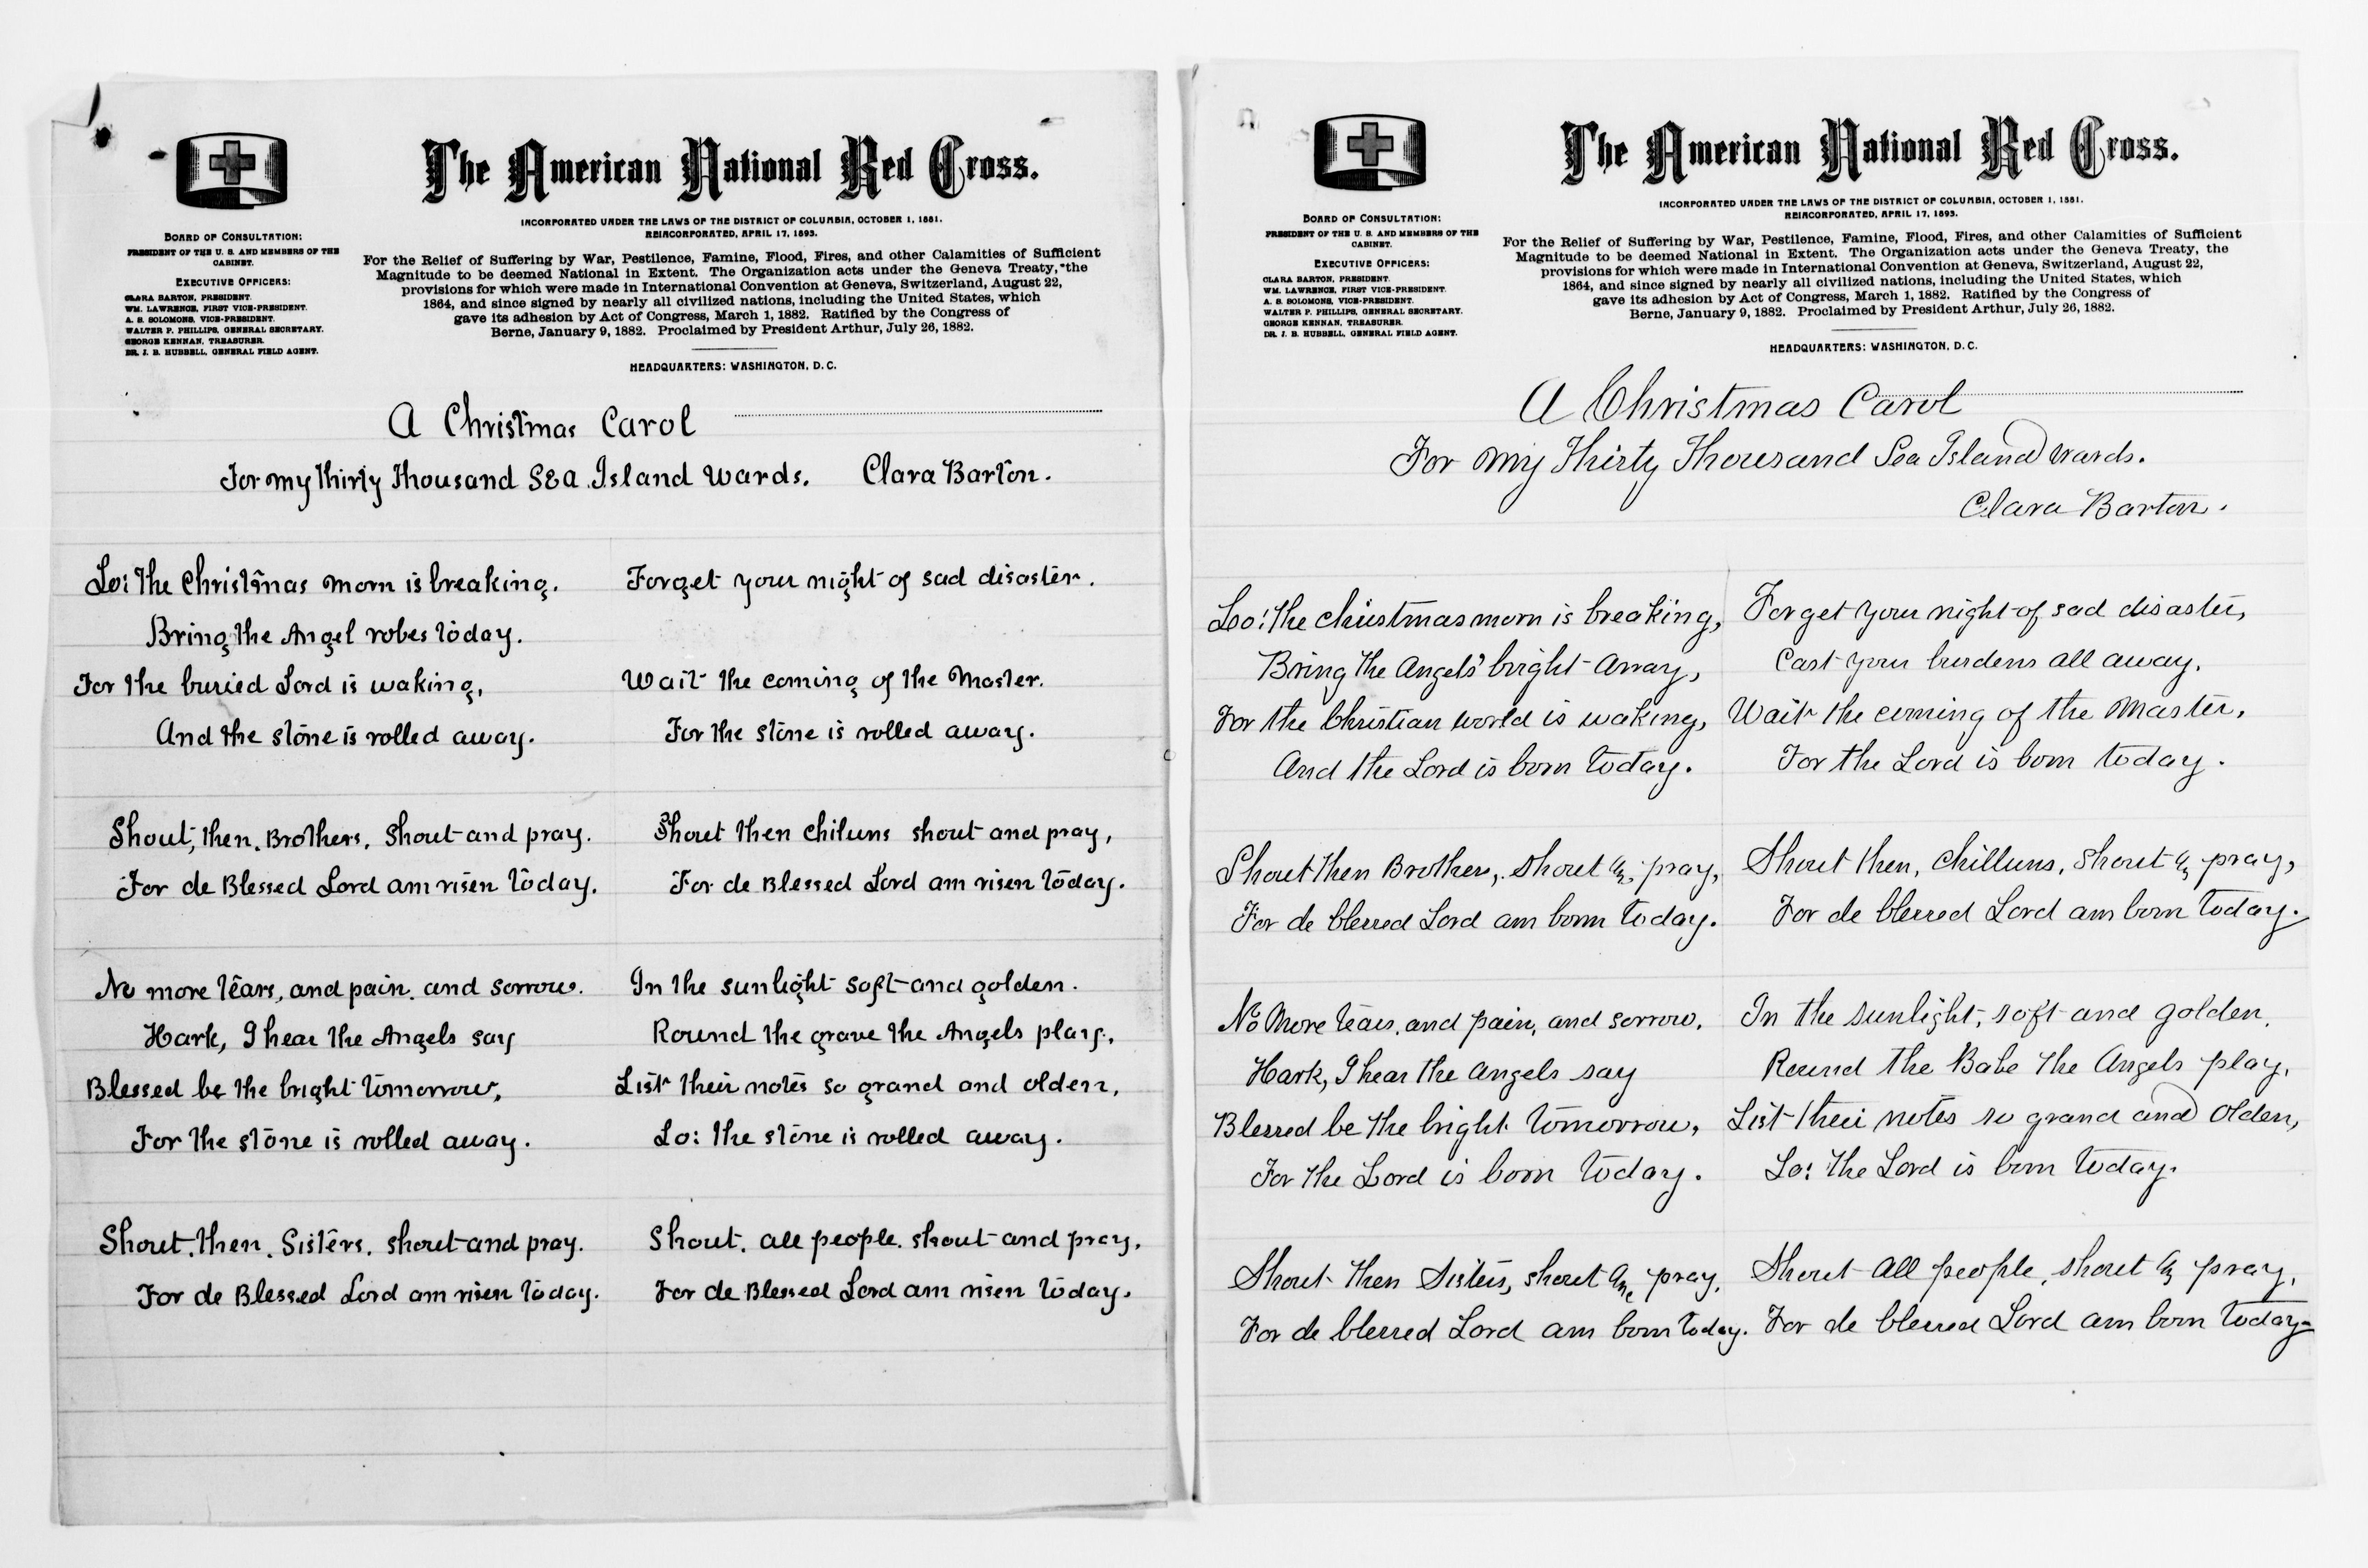 The American National Red Cross.
INCORPORATED UNDER THE LAWS OF THE DISTRICT OF COLUMBIA, OCTOBER 1, 1881.
REINCORPORATED, APRIL 17, 1893.
BOARD OF CONSULTATION:
PRESIDENT OF THE U. S. AND MEMBERS OF THE
CABINET.
EXECUTIVE OFFICERS:
CLARA BARTON, PRESIDENT.
WM. LAWRENCE, FIRST VICE-PRESIDENT.
A. S. SOLOMONS, VICE-PRESIDENT.
WALTER P. PHILLIPS, GENERAL SECRETARY.
GEORGE KENNAN, TREASURER.
DR. J. B. HUBBELL, GENERAL FIELD AGENT.
For the Relief of Suffering by War, Pestilence, Famine, Flood, Fires, and other Calamities of Sufficient
Magnitude to be deemed National in Extent. The Organization acts under the Geneva Treaty, the
provisions for which were made in International Convention at Geneva, Switzerland, August 22,
1864, and since signed by nearly all civilized nations, including the United States, which
gave its adhesion by Act of Congress, March 1, 1882. Ratified by the Congress of
Berne, January 9, 1882. Proclaimed by President Arthur, July 26, 1882.
HEADQUARTERS: WASHINGTON, D. C.
A Christmas Carol
For my Thirty Thousand Sea Island Wards. Clara Barton.
Lo: The Christmas morn is breaking.
Bring the Angel robes today.
For the buried Lord is waking,
And the stone is rolled away.
Shout, then, Brothers, Shout and pray.
For de Blessed Lord am risen today.
No more tears, and pain, and sorrow.
Hark, I hear the Angels say
Blessed be the bright tomorrow,
For the stone is rolled away.
Shout, then, Sisters, shout and pray.
For de Blessed Lord am risen today.
Forget your night of sad disaster.
Wait the coming of the Master.
For the stone is rolled away.
Shout then chiluns shout and pray,
For de Blessed Lord am risen today.
In the sunlight soft and golden.
Round the grave the Angels play,
List their notes so grand and olden,
Lo: the stone is rolled away.
Shout, all people, shout and pray,
For de Blessed Lord am risen today.
The American National Red Cross.
INCORPORATED UNDER THE LAWS OF THE DISTRICT OF COLUMBIA, OCTOBER 1, 1881.
REINCORPORATED, APRIL 17, 1893.
BOARD OF CONSULTATION:
PRESIDENT OF THE U. S. AND MEMBERS OF THE
CABINET.
EXECUTIVE OFFICERS:
CLARA BARTON, PRESIDENT.
WM. LAWRENCE, FIRST VICE-PRESIDENT.
A. S. SOLOMONS, VICE-PRESIDENT.
WALTER P. PHILLIPS, GENERAL SECRETARY.
GEORGE KENNAN, TREASURER.
DR. J. B. HUBBELL, GENERAL FIELD AGENT.
For the Relief of Suffering by War, Pestilence, Famine, Flood, Fires, and other Calamities of Sufficient
Magnitude to be deemed National in Extent. The Organization acts under the Geneva Treaty, the
provisions for which were made in International Convention at Geneva, Switzerland, August 22,
1864, and since signed by nearly all civilized nations, including the United States, which
gave its adhesion by Act of Congress, March 1, 1882. Ratified by the Congress of
Berne, January 9, 1882. Proclaimed by President Arthur, July 26, 1882.
HEADQUARTERS: WASHINGTON, D. C.
A Christmas Carol
For my Thirty Thousand Sea Island wards.
Clara Barton.
Lo: the christmas morn is breaking,
Bring the Angels' bright Array,
For the Christian world is waking,
And the Lord is born today.
Shout then Brothers, shout & pray,
For de blessed Lord am born today.
No More tears, and pain, and sorrow.
Hark, I hear the Angels say
Blessed be the bright tomorrow,
For the Lord is born today.
Shout then Sisters, shout & pray,
For de blessed Lord am born today.
Forget your night of sad disaster,
Cast your burdens all away,
Wait the coming of the Master,
For the Lord is born today.
Shout then, chilluns, shout & pray,
For de blessed Lord am born today.
In the sunlight, soft and golden,
Round the Babe the Angels play,
List their notes so grand and olden,
Lo: the Lord is born today.
Shout all people, shout & pray,
For de blessed Lord am born today